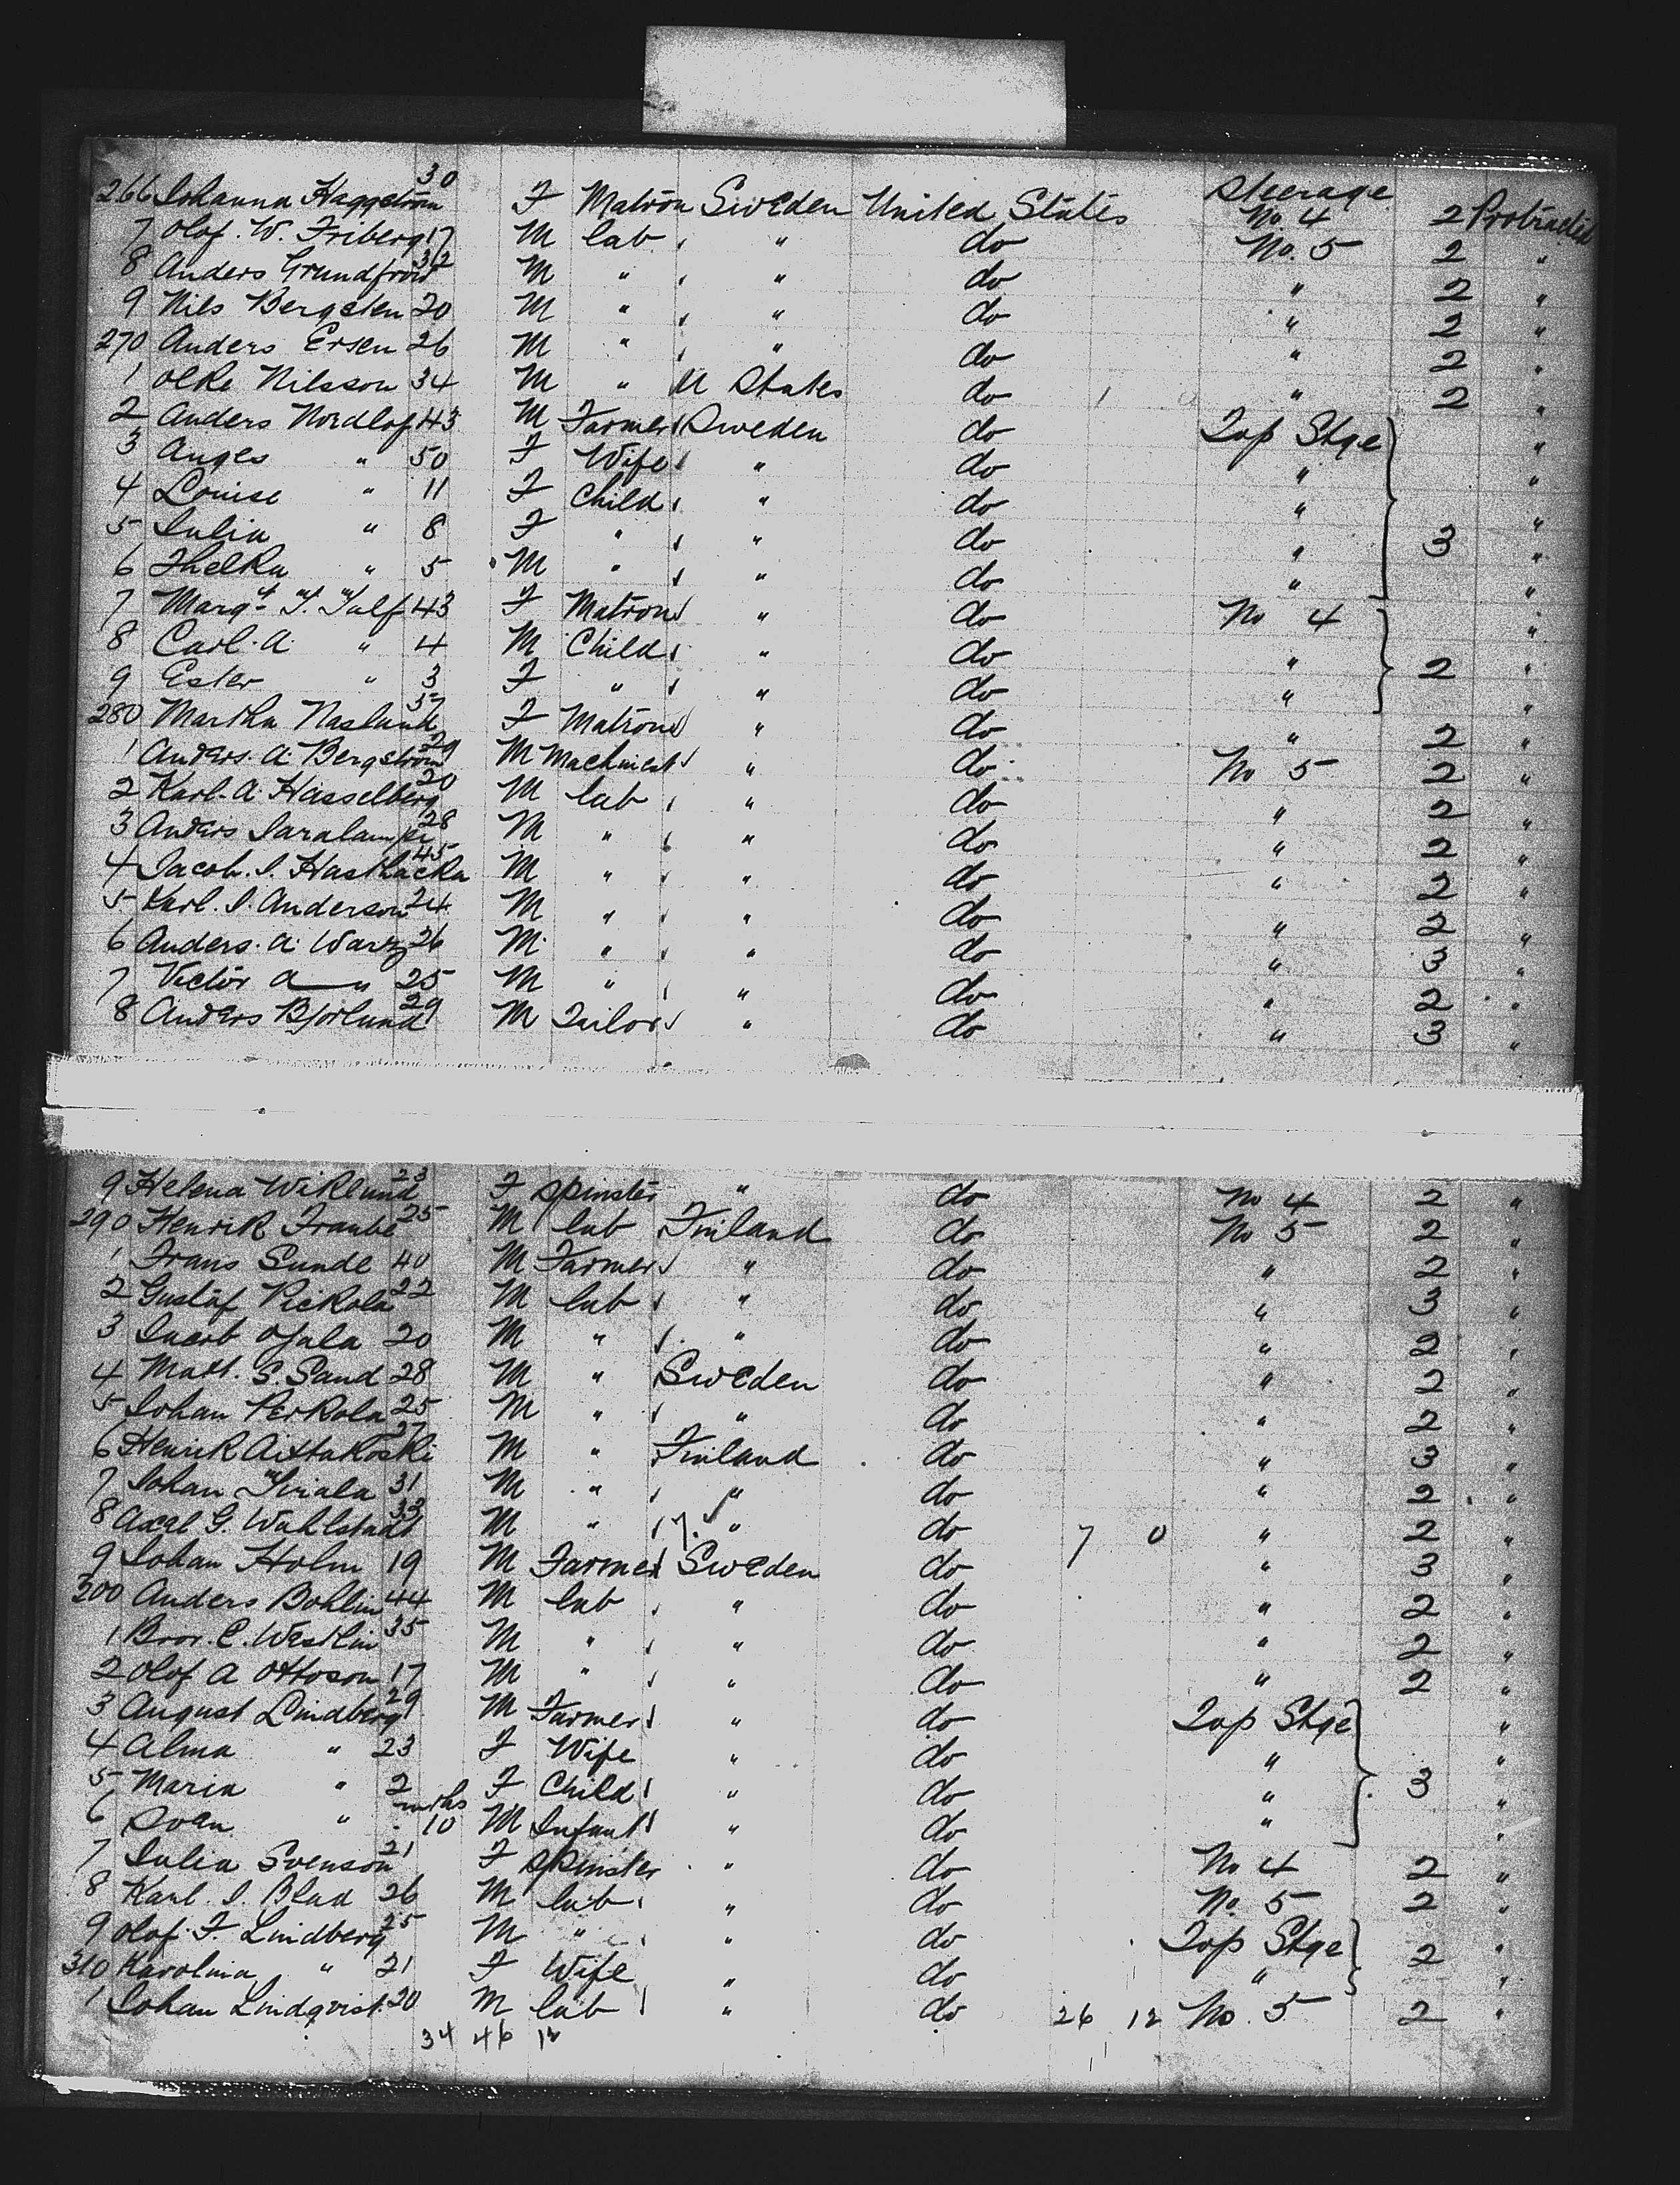 266 Johanna Haggstrom 30 F Matron Sweden United States Steerage No. 4 2 Protracted
7 Olof. W. Friberg 17 M lab " do No. 5 2 "
8 Anders Grundfroid 32 M " " do " 2 "
9 Nils Bergsten 20 M " " do " 2 "
270 Anders Ersen 26 M " " do " 2 "
1 Olke Nilsson 34 M " U States do 1 0 " 2 "
2 Anders Nordlof 43 M Farmer Sweden do Top Stge "
3 Anges " 50 F Wife " do " "
4 Louise " 11 F Child " do " "
5 Julia " 8 F " " do " 3 "
6 Thelka " 5 M " " do " "
7 Margt T. Tulf 43 F Matron " do No 4 "
8 Carl. A " 4 M Child " do " 2 "
9 Ester " 3 F " " do " "
280 Martha Naslund 37 F Matron " do " 2 "
1 Anders. A. Bergstrom 29 M Machinest " do No 5 2 "
2 Karl. A. Hasselberg 20 M lab " do " 2 "
3 Anders Saralampi 28 M " " do " 2 "
4 Jacob. J. Hasthacka 45 M " " do " 2 "
5 Karl. J. Anderson 24 M " " do " 2 "
6 Anders. A. Warz 26 M " " do " 3 "
7 Victor A " 25 M " " do " 2 "
8 Anders Bjorlund 29 M Tailor " do " 3 "
9 Helena Wiklund 23 F Spinster " do No 4 2 "
290 Henrik Fraube 25 M lab Finland do No 5 2 "
1 Frans Sunde 40 M Farmer " do " 2 "
2 Gustaf Pickola 22 M lab " do " 3 "
3 Jacob Ojala 20 M " " do " 2 "
4 Matt. S. Sand 28 M " Sweden do " 2 "
5 Johan Perkola 25 M " " do " 2 "
6 Henrik Aittakoski 27 M " Finland do " 3 "
7 Johan Tirala 31 M " " do " 2 "
8 Axel G. Wahlstadt 33 M " 7. " do 7 0 " 2 "
9 Johan Holm 19 M Farmer Sweden do " 3 "
300 Anders Bohlin 44 M lab " do " 2 "
1 Bror. C. Westlin 35 M " " do " 2 "
2 Olof A Ottoson 17 M " " do " 2 "
3 August Lindberg 29 M Farmer " do Top Stge "
4 Alma " 23 F Wife " do " "
5 Maria " 2 F Child " do " 3 "
6 Svan " mths 10 M Infant " do " "
7 Julia Svenson 21 F Spinster " do No 4 2 "
8 Karl. J. Blad 26 M lab " do No. 5 2 "
9 Olof. F. Lindberg 25 M " " do Top Stge 2 "
310 Karolina " 21 F Wife " do " "
1 Johan Lindqvist 20 M lab " do 26 12 No. 5 2 "
34 46 12